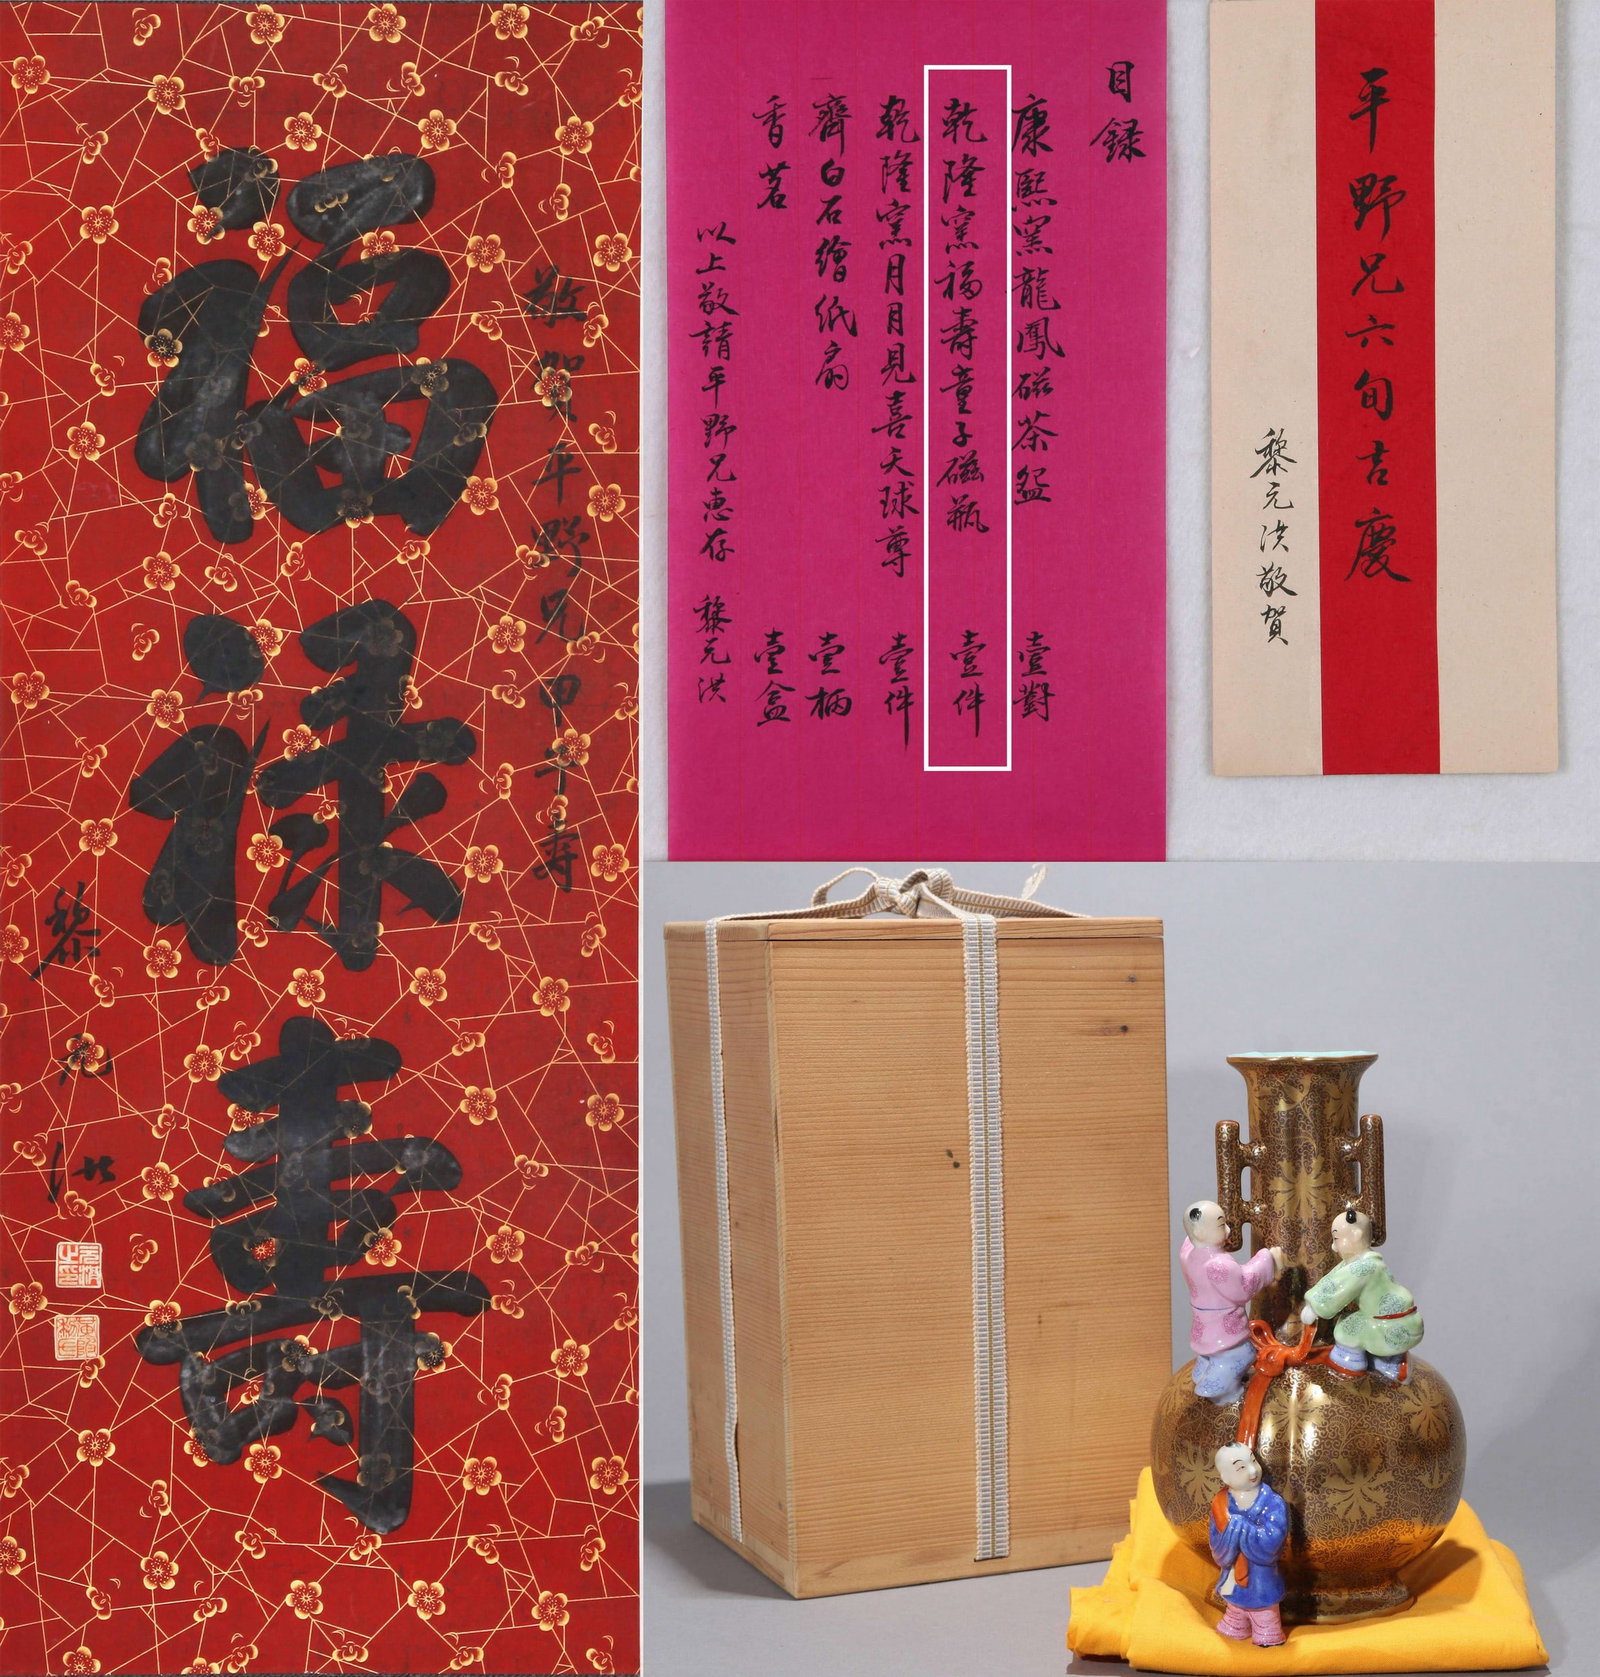 福祿壽
敬賀平野兄甲午壽
黎元洪
目録
康熙窯龍鳳磁茶盌 壹對
乾隆窯福壽童子磁瓶 壹件
乾隆窯月月見喜天球尊 壹件
齊白石繪紙扇 壹柄
香茗 壹盒
以上敬請平野兄惠存 黎元洪
平野兄六旬吉慶
黎元洪敬賀